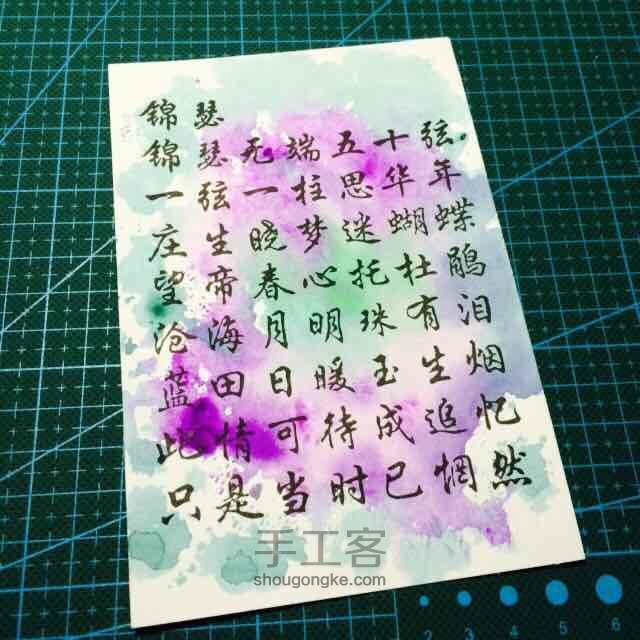 锦瑟
锦瑟无端五十弦
一弦一柱思华年
庄生晓梦迷蝴蝶
望帝春心托杜鹃
沧海月明珠有泪
蓝田日暖玉生烟
此情可待成追忆
只是当时已惘然
手工客
shougongke.com
1 2 3 4 5 6